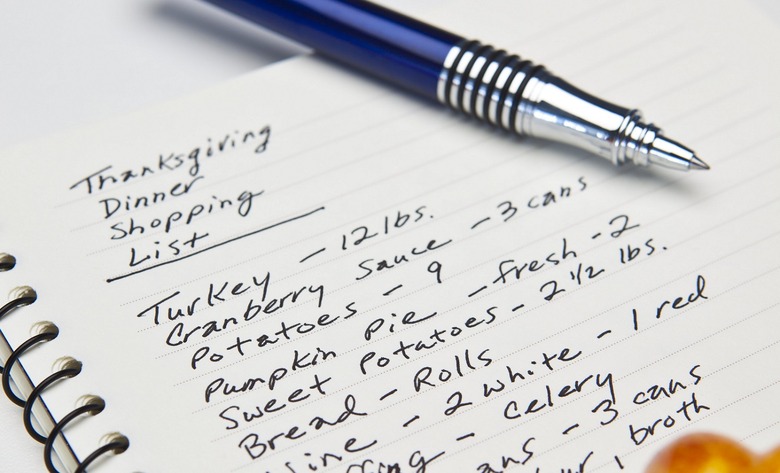 Thanksgiving
Dinner
Shopping
List
Turkey - 12 lbs.
Cranberry Sauce - 3 cans
Potatoes - 9
Pumpkin Pie - fresh - 2
Sweet Potatoes - 2 1/2 lbs.
Bread - Rolls
- 2 white - 1 red
- Celery
- 3 cans
1 broth